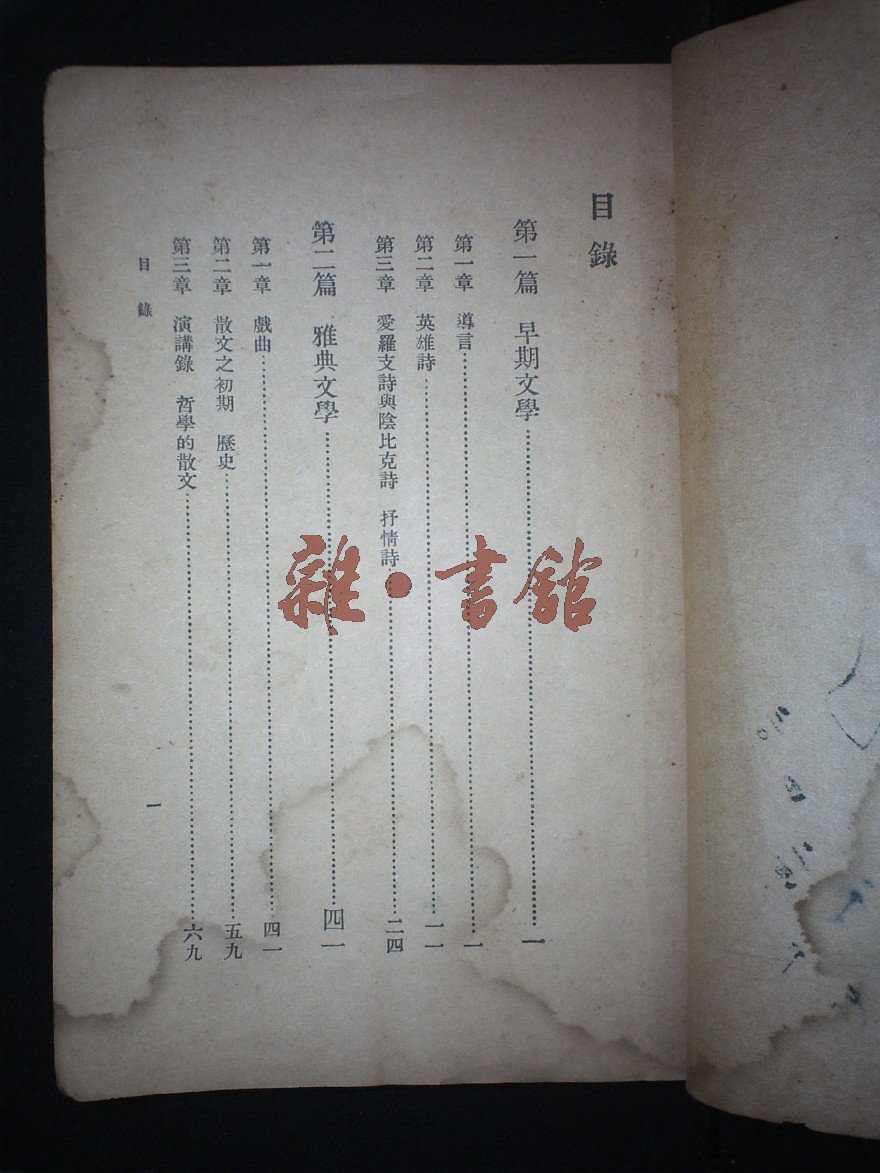 目錄
第一篇 早期文學……一
第一章 導言……一
第二章 英雄詩……一一
第三章 愛羅支詩與陰比克詩 抒情詩……二四
第二篇 雅典文學……四一
第一章 戲曲……四一
第二章 散文之初期 歷史……五九
第三章 演講錄 哲學的散文……六九
目錄 一
雜·書館